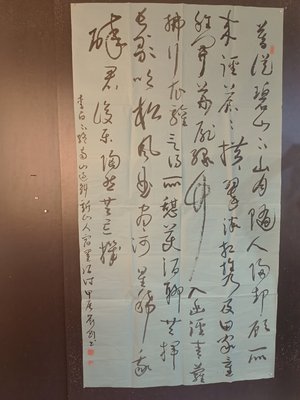 暮從碧山下山月隨人歸却顧所
來徑蒼々橫翠微相攜及田家童
稚開荊扉綠竹入幽徑青蘿
拂行衣歡言得所憩美酒聊共揮
長歌吟松風曲盡河星稀我
醉君復樂陶然共忘機
李白下終南山過斛斯山人宿置酒詩 甲辰